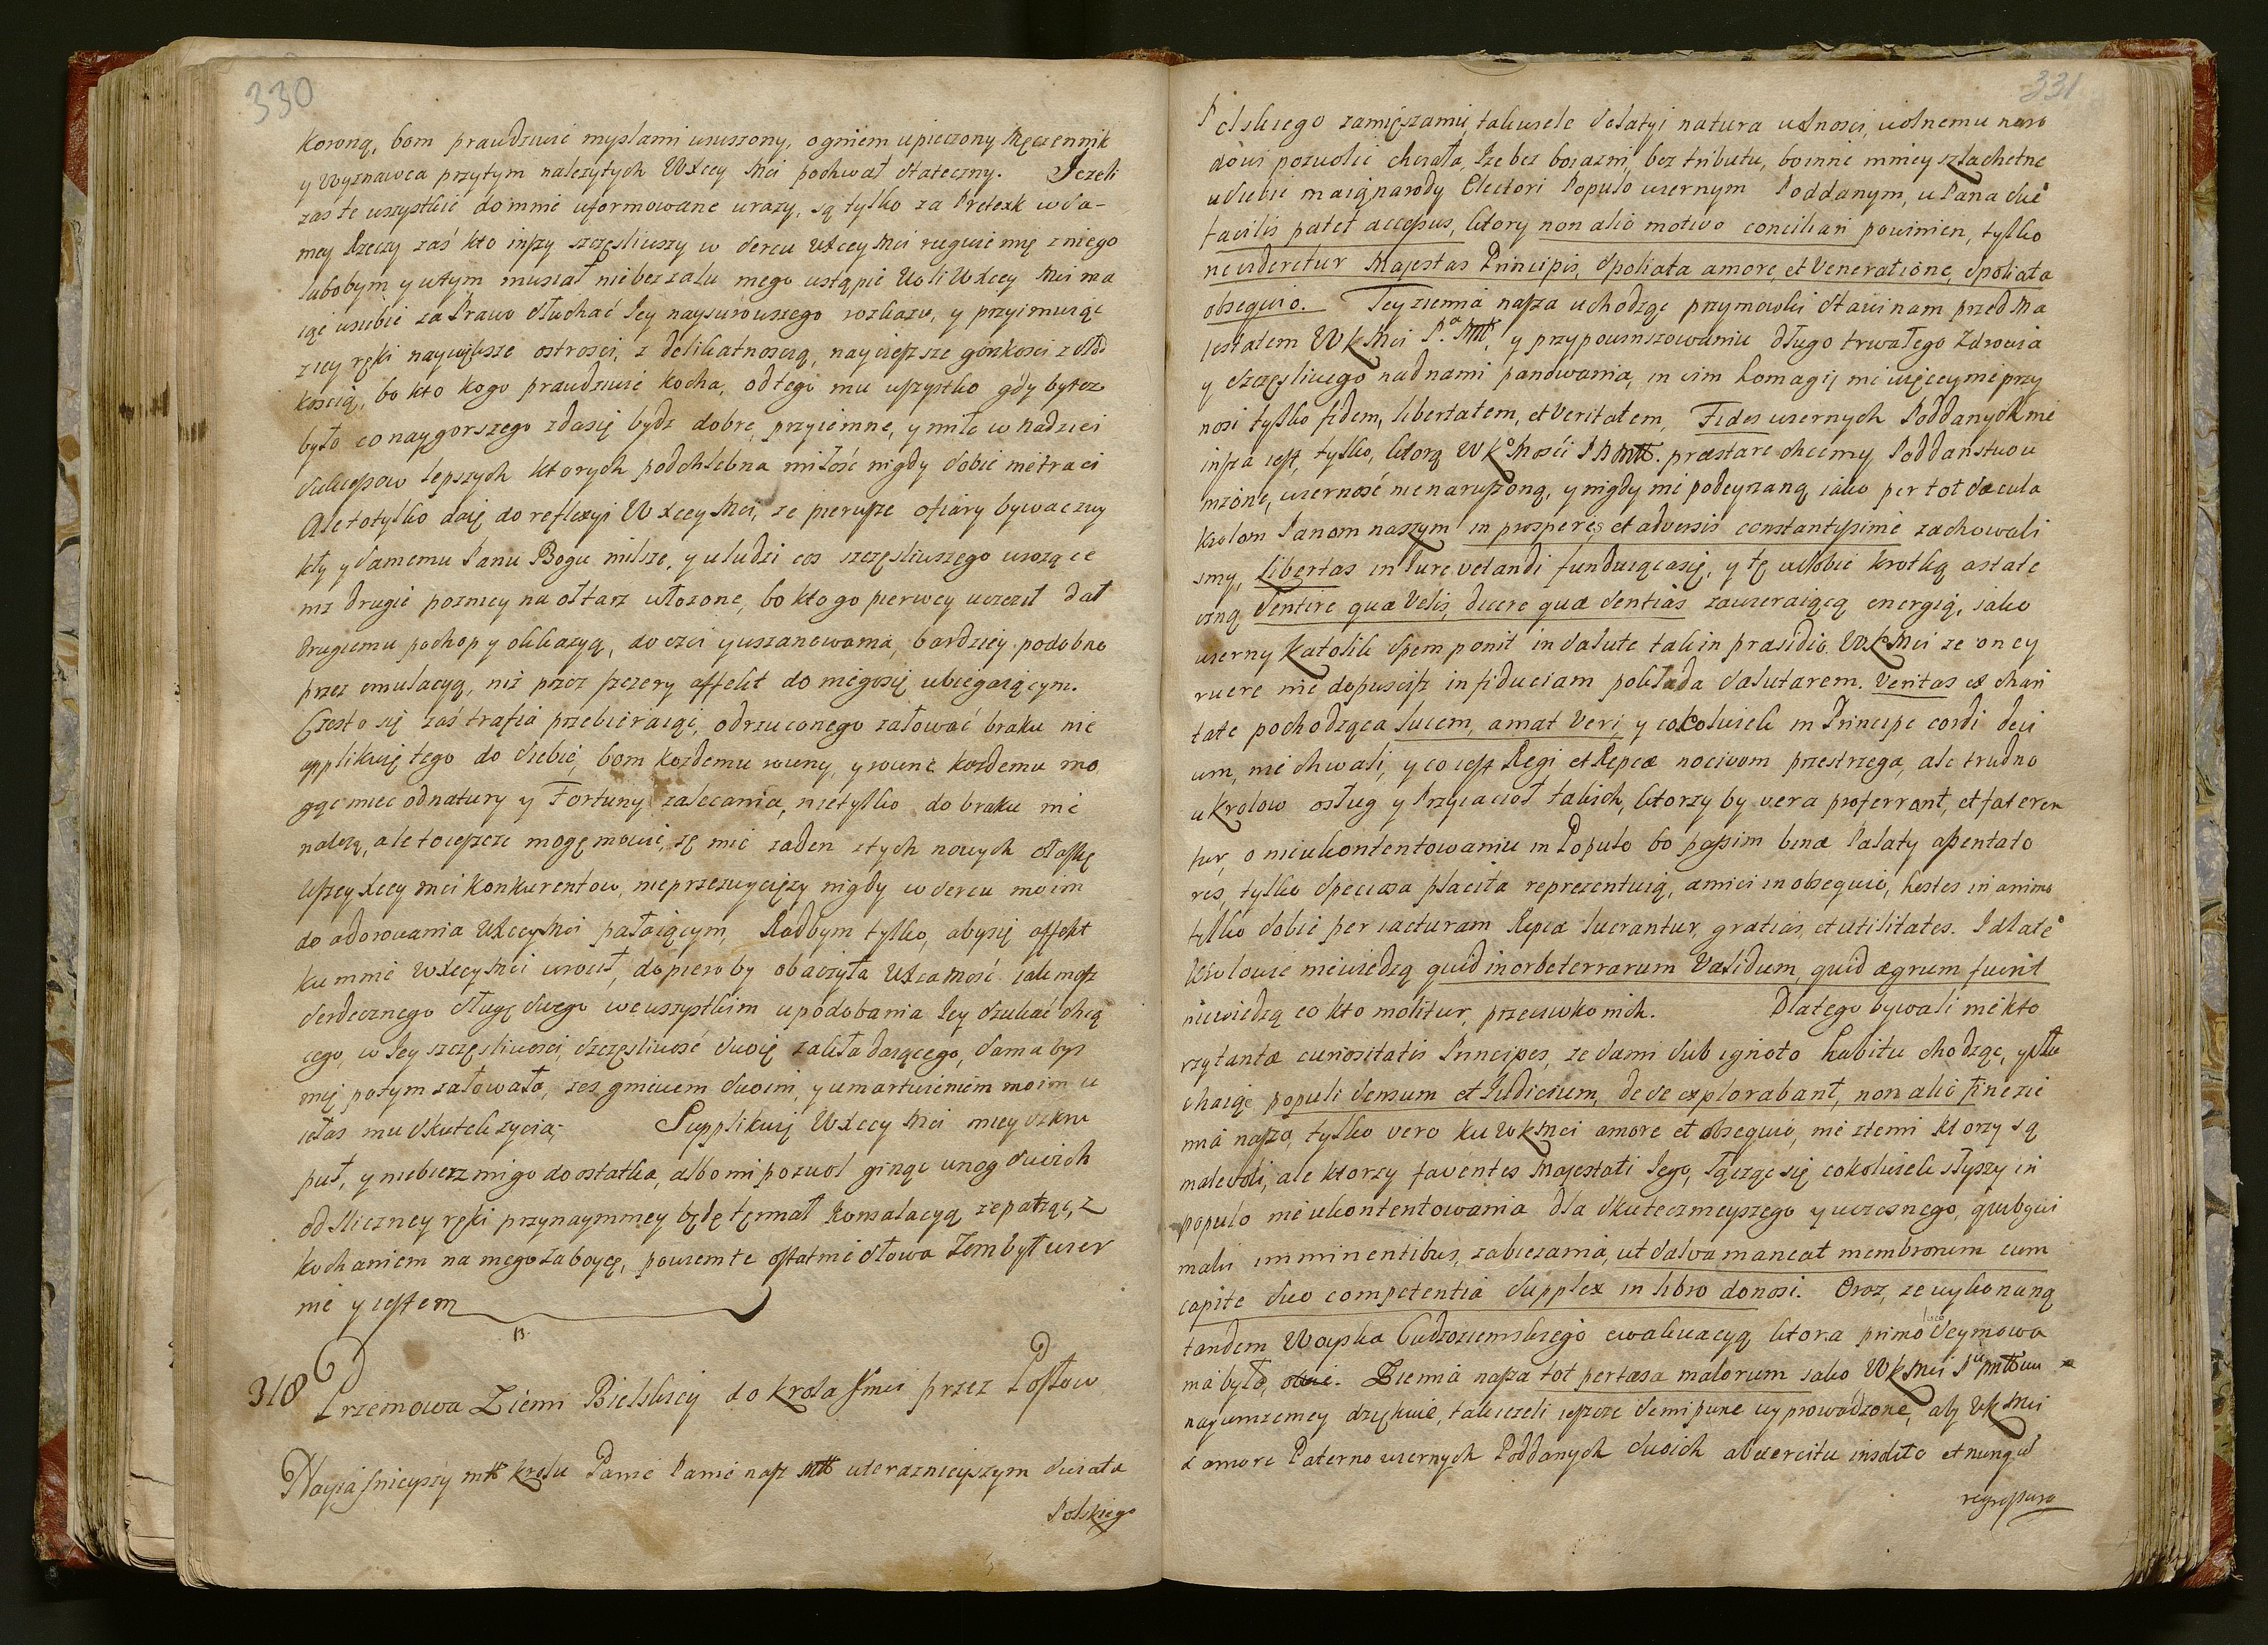 330
Koroną, bom prawdziwie myslami ususzony, ogniem upieczony Męczennik
y Wyznawca przytym nalezytych WXcey Mci pochwał stateczny. Jezeli
zas te wszystkie do mnie uformowane urazy, są tylko za Pretext w sa-
mey Rzeczy zaś kto inszy szczęsliwszy w sercu WXcey Mci ruguie mię z niego
lubobym y w tym musiał nie bez zalu mego ustąpić Woli WXcey Mci ma
iąc w sobie za Prawo słuchać Jey naysurowszego rozkazu, y przyimuiąc
z iey ręki naywiększe ostrosci, z delikatnoscią, naycięższe gorzkosci z słod
koscią, bo kto kogo prawdziwie kocha, od tego mu wszystko gdy by tez
było co naygorszego zda się bydz dobre, przyiemne, y miłe w nadziei
sukcessow lepszych ktorych podchlebna miłość nigdy sobie nie traci
Ale to tylko daię do reflexyi WXcey Mci, ze pierwsze ofiary bywac zwy
kły y samemu Panu Bogu milsze, y u ludzi cos szczęsliwszego wrozące
niz drugie pozniey na ołtarz włozone, bo kto go pierwey uczcił dał
drugiemu pochop y okkazyą, do czci y uszanowania, bardziey podobno
przez emulacyą, niz przez szczery affekt do niego się ubiegaiącym.
Często się zaś trafia przebieraiąc, odrzuconego załować braku nie
applikuię tego do siebie, bom kozdemu rowny, y rowne kozdemu mo
gąc miec od natury y Fortuny zalecania, nie tylko do braku nie
nalezą, ale to ieszcze mogę mowic, zę mię zaden z tych nowych o łaskę
WXcey Mci konkurentow, nie przezwycięzy nigdy w sercu moim
do adorowania WXcey Mci pałaiącym, Radbym tylko, aby się affekt
ku mnie WXcey Mci wrocił, dopiero by obaczyła WXca Mość iak masz
serdecznego sługę swego we wszystkim upodobania Jey szukać chcą
cego, w Jey szczęsliwosci, szczęsliwość swoię zakładaiącego, sama bys
mię potym załowała, zes gniewem swoim, y umartwieniem moim u
ięłas mu skutek zycia; Supplikuię WXcey Mci niey uzkru
puł, y nie bierz mi go do ostatka, albo mi pozwol ginąc u nog swoich
od sliczney ręki przynaymniey będę tę miał konsolacyą ze patrząc, z
kochaniem na mego zaboycę, powiem te ostatnie słowa zem był wier
nie y iestem
318 Przemowa Ziemi Bielskiey do Krola Jmci przez Posłow
Nayiasnieyszy Mtt Krolu Panie Panie nasz Mtt w teraznieyszym swiata
Polskiego
331
Polskiego zamięszaniu, tak wiele dolatyi natura wolnosci, wolnemu naro
dowi pozwolic chciała, Ize bez boiazni, bez tributu, bo inne mniey szlachetne
u siebie maią narody Electori Populo wiernym Poddanym, u Pana swe
facilis patet accessus, ktory non alio motivo conciliari powinien, tylko
ne videretur Majestas Principis, spoliata amore, et Veneratione, spoliata
obsequio. Tey ziemia nasza uchodząc przymowki stawi nam przed Ma
iestatem WKMci P. Mtt, y przypowinszowaniu długo trwałego Zdrowia
y szczęsliwego nad nami panowania, in vim homagij nic więcey nie przy
nosi tylko fidem, libertatem, et Veritatem, Fides wiernych Poddanych nie
insza iest, tylko, ktorą WK Mości PNMtt. præstare chcemy Poddanstwo u
nizone, wierność nienaruszoną, y nigdy nie podeyrzaną iako per tot sæcula
Krolom Panom naszym in prosperis et adversis constantissime zachowali
smy, Libertas in Jure vetandi funduiąca się, y tę w sobie krotką a state
czną Sentire quæ Velis, dicere quæ sentias zawieraiącą energią, iako
wierny Katolik spem ponit in salute tak in præsidio WKMci ze oney
ruere nie dopuscisz in fiduciam pokłada salutarem. Veritas ex chari
tate pochodząca lucem, amat Veri, y cokolwiek in Principe cordi deci
um, nie chwali, y co iest Regi et Rpcæ nocivom przestrzega, ale trudno
u Krolow o sług y Przyiacioł takich, ktorzy by vera proferrant, et fateren
tur, o nieukontentowaniu in Populo bo passim binæ Palaty assentato
res, tylko speciosa placita reprezentuią, amici in obsequio, hostes in animo
tylko sobie per iacturam Rpcæ lucrantur, gratias, et utilitates. I stąd
Krolowie nie wiedzą quid in orbe terrarum Validum, quid ægrum fuerit
nie wiedzą co kto molitur, przeciwko nich. Dlatego bywali niekto
rzy tantæ curiositatis Principes, ze sami sub ignoto habitu chodząc, y słu
chaiąc populi sensum et Judicium, de se explorabant, non alio fine zie
mia nasza, tylko vero ku WKMci amore et obsequio, nie z temi ktorzy są
malevoli, ale ktorzy faventes Majestati Jego, łącząc się cokolwiek słyszy in
populo nieukontentowania dla skutecznieyszego y wczesnego, quibusvis
malis imminentibus, zabiezania, ut salva maneat membrorum cum
capite suo competentia supplex in libro donosi. Oraz, ze wykonaną
tandem Woyska Cudzoziemskiego ewakuacyą ktora primo Seymowa
nia było, Ziemia nasza tot pertæsa malorum iako WKMci PMttwu
nayunizeniey dziękuie, tak iezeli ieszcze semi pune wyprowadzone, abj WKMci
ex amore Paterno wiernych Poddanych swoich ab exercitu insolito et nunquā